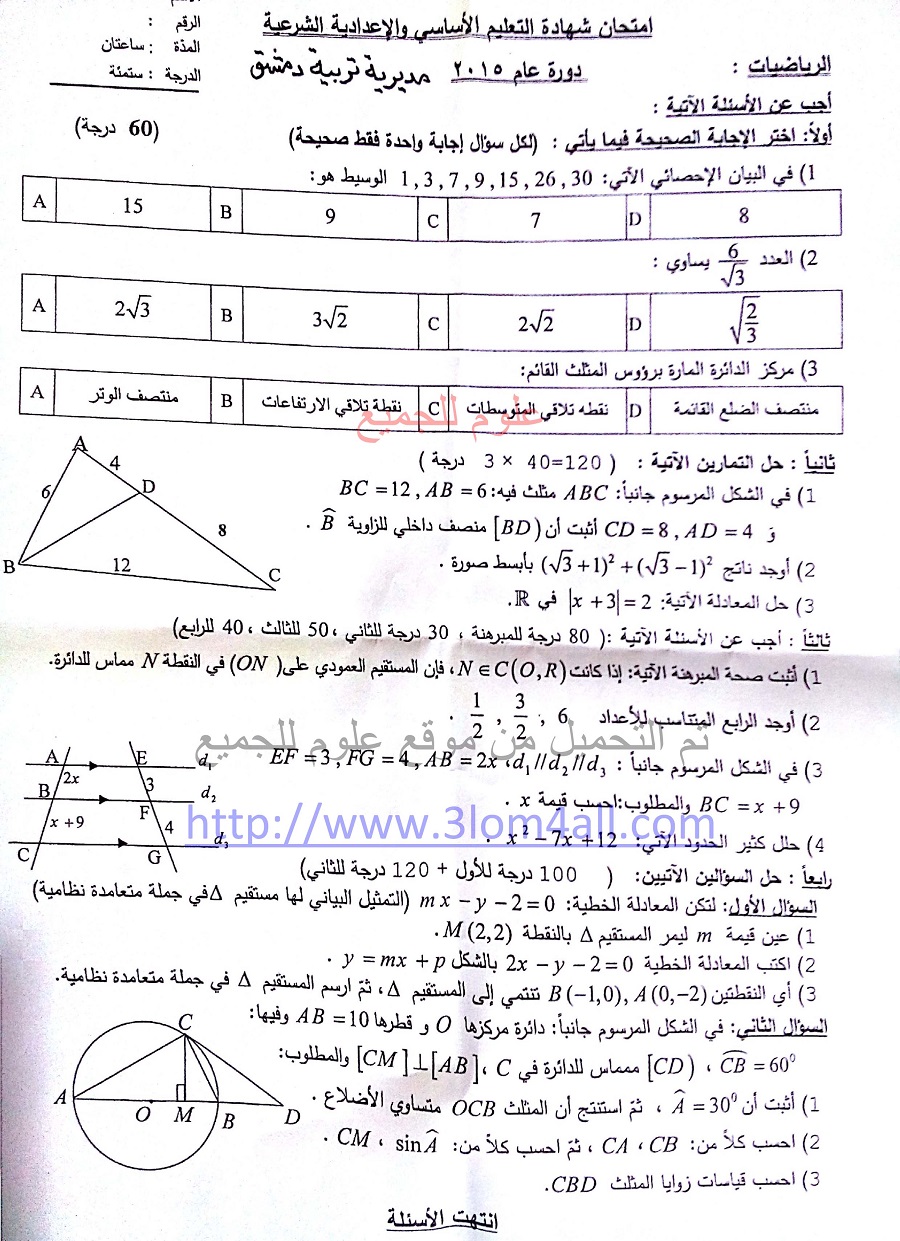 امتحان شهادة التعليم الأساسي والإعدادية الشرعية
الرقم :
المدة : ساعتان
الدرجة : ستمئة
الرياضيات : دورة عام ٢٠١٥ مديرية تربية دمشق
أجب عن الأسئلة الآتية :
أولاً: اختر الإجابة الصحيحة فيما يأتي : (لكل سؤال إجابة واحدة فقط صحيحة) (60 درجة)
1) في البيان الإحصائي الآتي: 1 , 3 , 7 , 9 , 15 , 26 , 30 الوسيط هو:
A 15 B 9 C 7 D 8
2) العدد 6/√3 يساوي :
A 2√3 B 3√2 C 2√2 D √(2/3)
3) مركز الدائرة المارة برؤوس المثلث القائم:
A منتصف الوتر B نقطة تلاقي الارتفاعات C نقطه تلاقي المتوسطات D منتصف الضلع القائمة
علوم للجميع
ثانياً : حل التمارين الآتية : ( 120=40 × 3 درجة )
1) في الشكل المرسوم جانباً: ABC مثلث فيه: BC =12 , AB = 6
وَ CD = 8 , AD = 4 أثبت أن [BD) منصف داخلي للزاوية B̂ .
A 4 D 6 8 B 12 C
2) أوجد ناتج (√3+1)² + (√3−1)² بأبسط صورة .
3) حل المعادلة الآتية: |x + 3| = 2 في ℝ.
ثالثاً : أجب عن الأسئلة الآتية :( 80 درجة للمبرهنة ، 30 درجة للثاني ،50 للثالث ، 40 للرابع)
1) أثبت صحة المبرهنة الآتية: إذا كانت N ∈ C(O,R) ، فإن المستقيم العمودي على (ON) في النقطة N مماس للدائرة.
2) أوجد الرابع المتناسب للأعداد 6 , 3/2 , 1/2 .
تم التحميل من موقع علوم للجميع
3) في الشكل المرسوم جانباً : d₁//d₂//d₃ ، EF = 3 , FG = 4 , AB = 2x
BC = x + 9 والمطلوب:احسب قيمة x .
A E d₁ 2x 3 B F d₂ x +9 4 C G d₃
http://www.3lom4all.com
4) حلل كثير الحدود الآتي: x² − 7x + 12 .
رابعاً : حل السؤالين الآتيين: ( 100 درجة للأول + 120 درجة للثاني)
السؤال الأول: لتكن المعادلة الخطية: m x − y − 2 = 0 (التمثيل البياني لها مستقيم Δ في جملة متعامدة نظامية)
1) عين قيمة m ليمر المستقيم Δ بالنقطة M(2,2).
2) اكتب المعادلة الخطية 2x − y − 2 = 0 بالشكل y = mx + p .
3) أي النقطتين B(−1,0) , A(0,−2) تنتمي إلى المستقيم Δ ، ثمّ ارسم المستقيم Δ في جملة متعامدة نظامية.
السؤال الثاني: في الشكل المرسوم جانباً: دائرة مركزها O و قطرها AB =10 وفيها:
CB = 60⁰ ، [CD) ممماس للدائرة في C ، [CM]⊥[AB] والمطلوب:
1) أثبت أن Â = 30⁰ ، ثمّ استنتج أن المثلث OCB متساوي الأضلاع .
2) احسب كلاً من: CA ، CB ، ثمّ احسب كلاً من: sin Â ، CM .
3) احسب قياسات زوايا المثلث CBD.
C A O M B D
انتهت الأسئلة